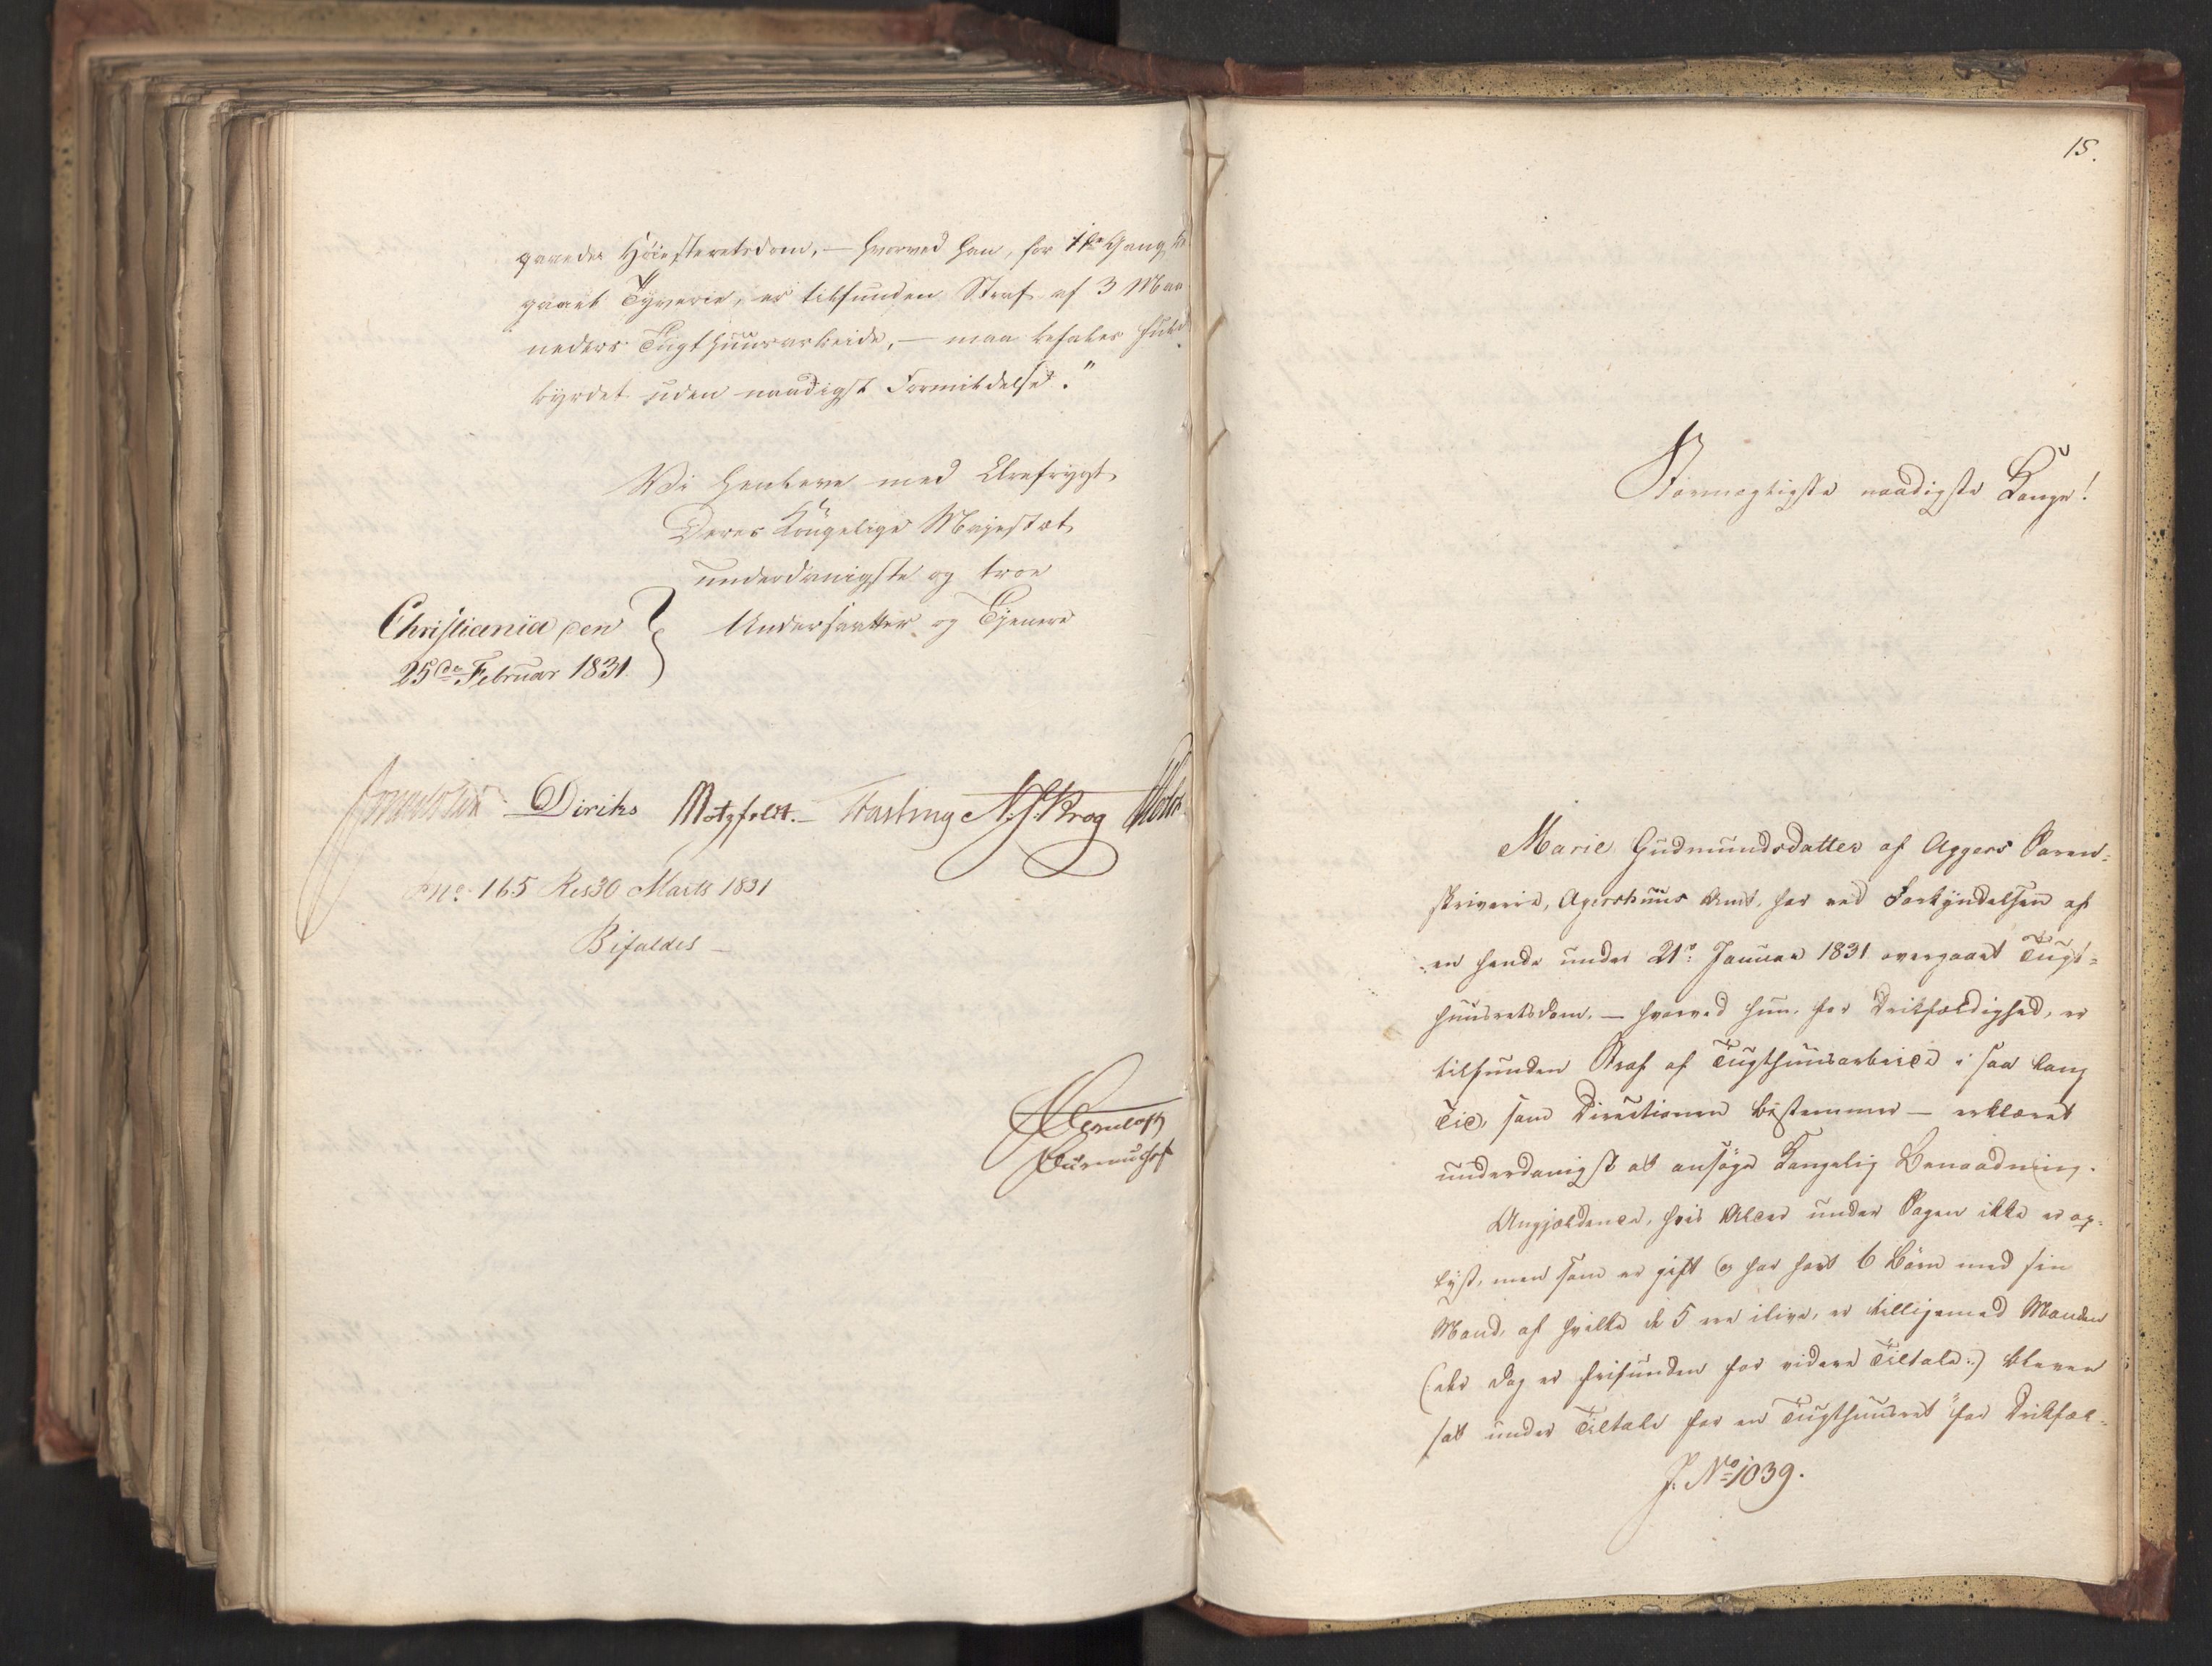 gaaende Höiesteretsdom, — hvorved han, for 1ste Gang be
gaaet Tyverie, er tilfunden Straf af 3 Maa
neders Tugthuusarbeide, — maa befales fuld
byrdet uden naadigst Formildelse."
Vi henleve med Ærefrygt
Deres Kongelige Majestæt
underdanigste og troe
Undersaatter og Tjenere
Christiania den
25de Februar 1831
Diriks Motzfeldt. Fasting N. J. Krog
No. 165 Res 30 Marts 1831
Bifaldes —
15.
Stormægtigste naadigste Konge!
Marie Gudmundsdatter af Aggers Soren-
skriverie, Agershuus Amt, har ved Forkyndelsen af
en hende under 21de Januar 1831 overgaaet Tugt-
huusretsdom, — hvorved hun, for Drikfældighed, er
tilfunden Straf af Tugthuusarbeide i saa lang
Tid, som Directionen bestemmer — erklæret
underdanigst at ansøge Kongelig Benaadning.
Angjældende, hvis Alder under Sagen ikke er op-
lyst, men som er gift og har havt 6 Børn med sin
Mand, af hvilke de 5 ere ilive, er tilligemed Manden
(: der dog er frifunden for videre Tiltale :) bleven
sat under Tiltale for en Tugthuusret "for Drikfæl-
J. No 1039.